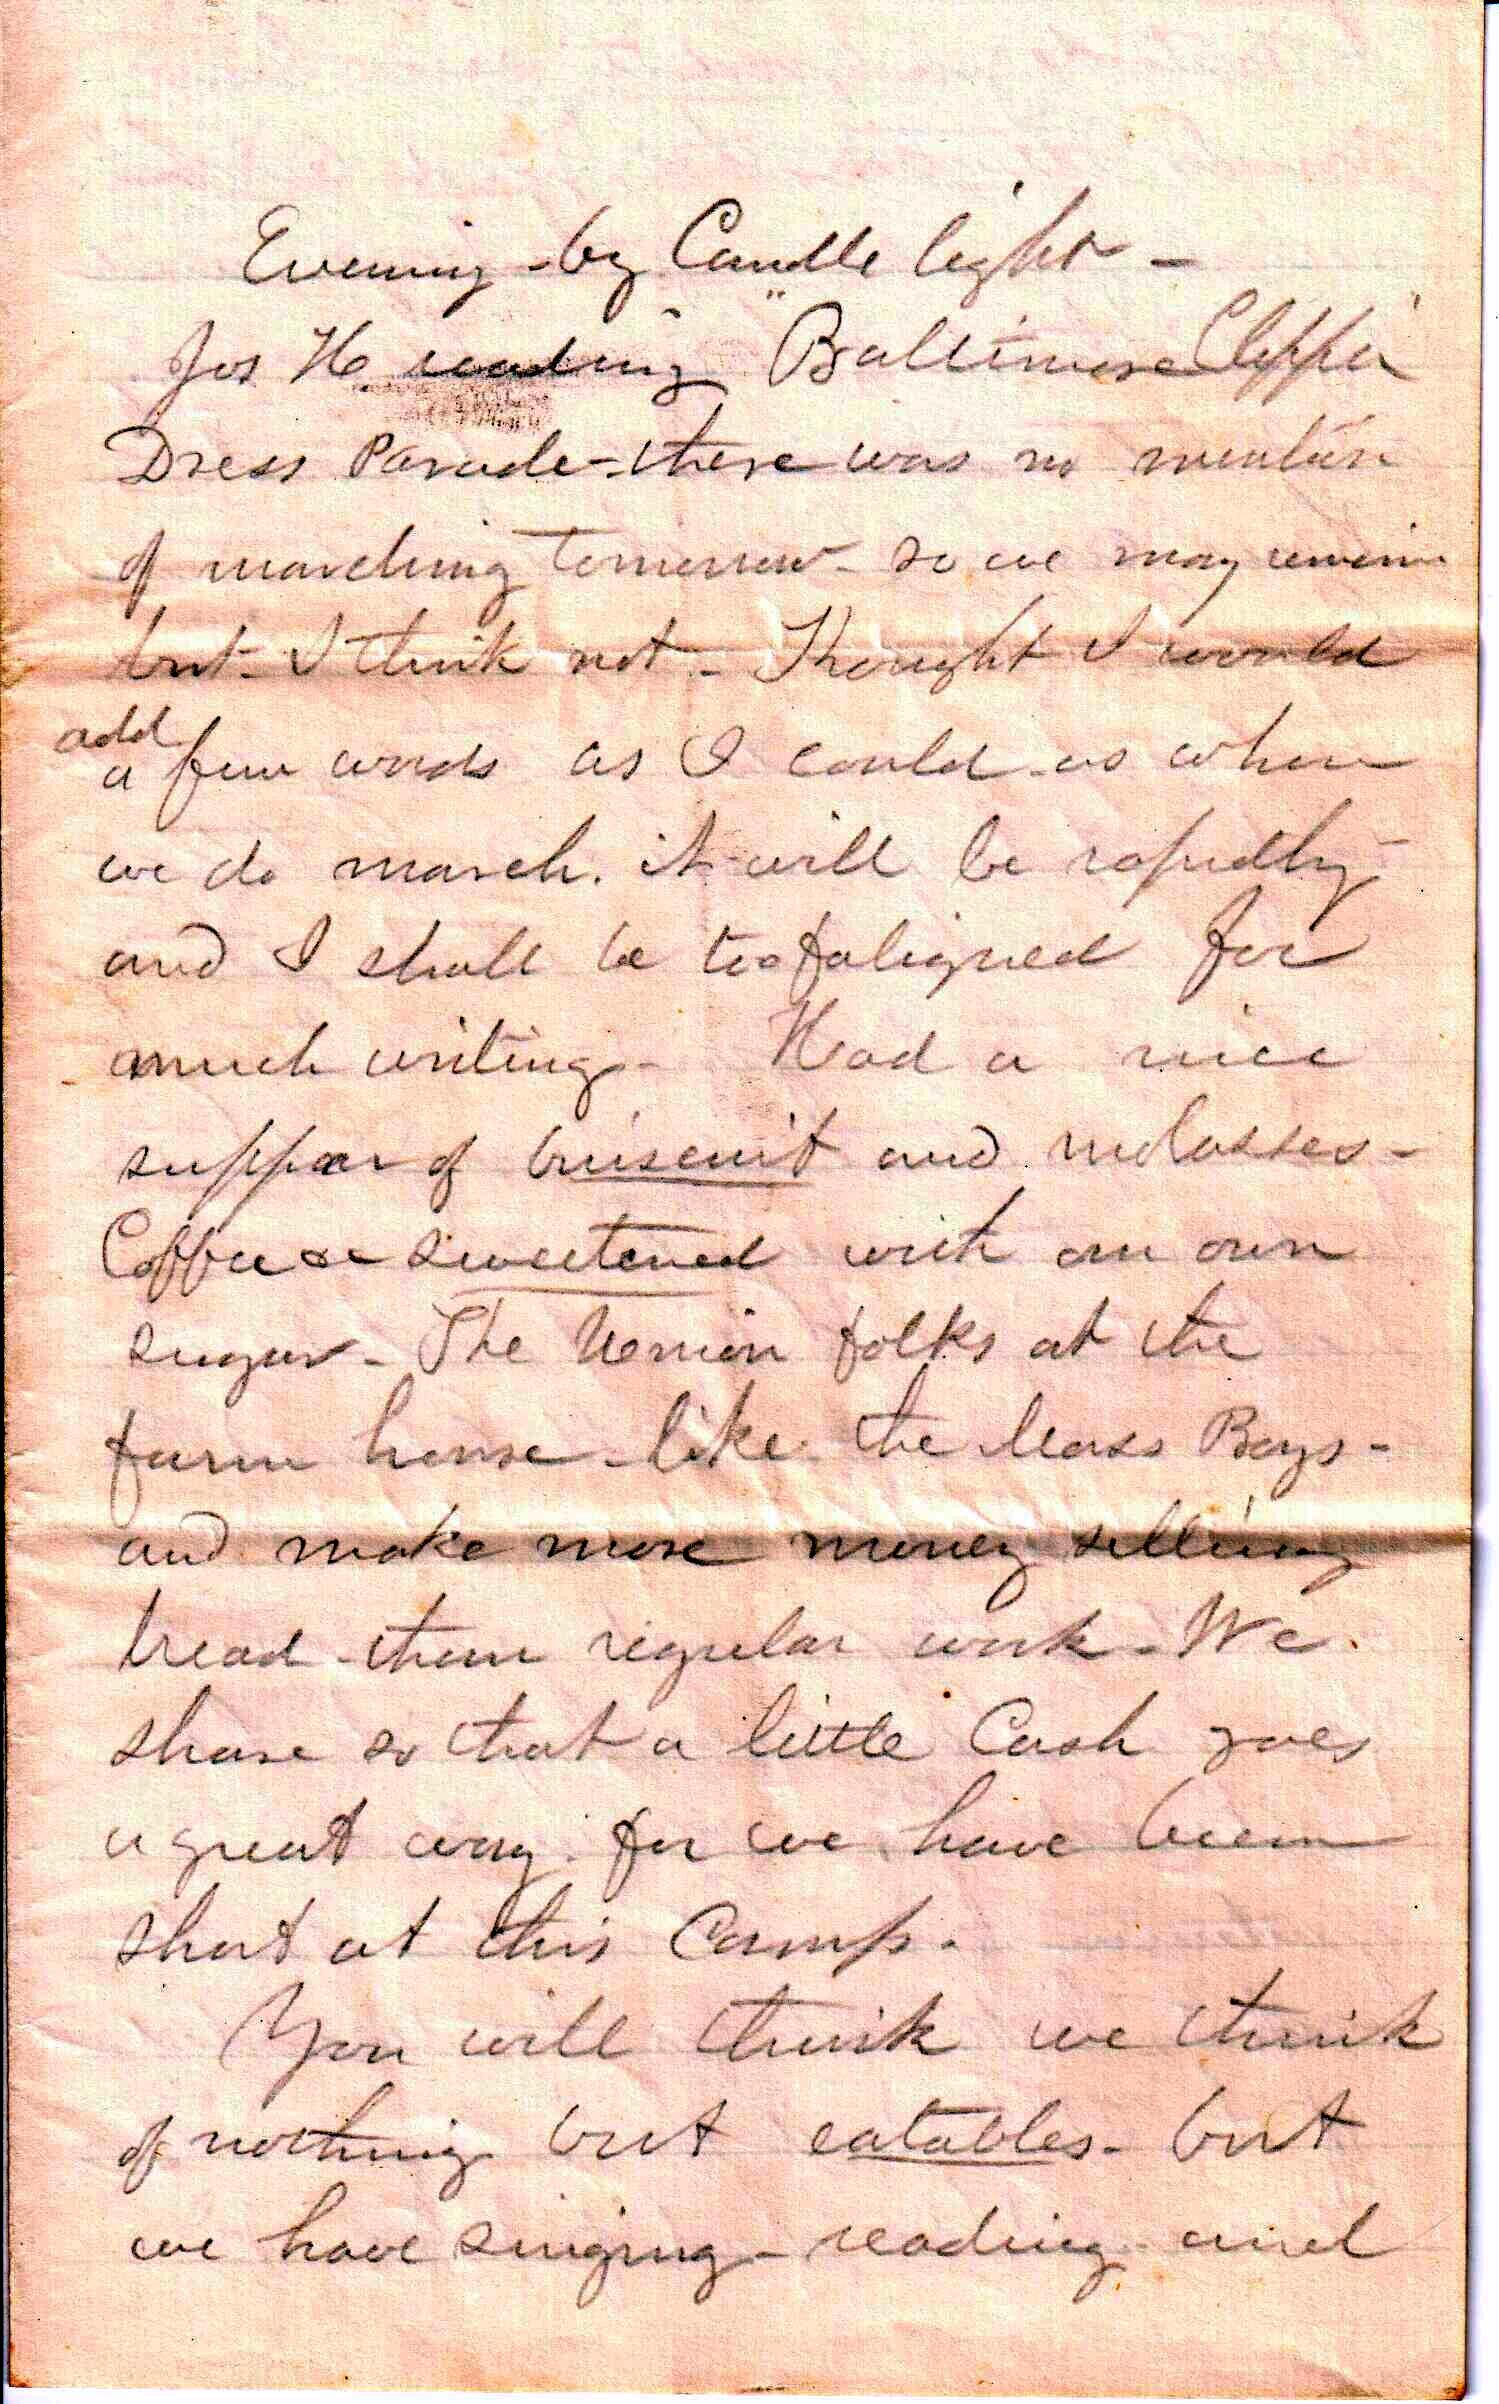 Evening - by Candle light -
Jos H. reading "Baltimore Clipper"
Dress Parade - there was no mention
of marching tomorrow - so we may remain
but - I think not - Thought I would
add
a few words as I could - as when
we do march. it will be rapidly -
and I shall be too fatigued for
much writing - Had a nice
supper of buiscuit and molasses -
Coffee sweetened with our own
sugar - The Union folks at the
farm house - like the Mass Boys -
and make more money selling
bread - than regular work - We
share so that a little Cash goes
a great way for we have been
short at this Camp.
You will think we think
of nothing but eatables - but
we have singing - reading and